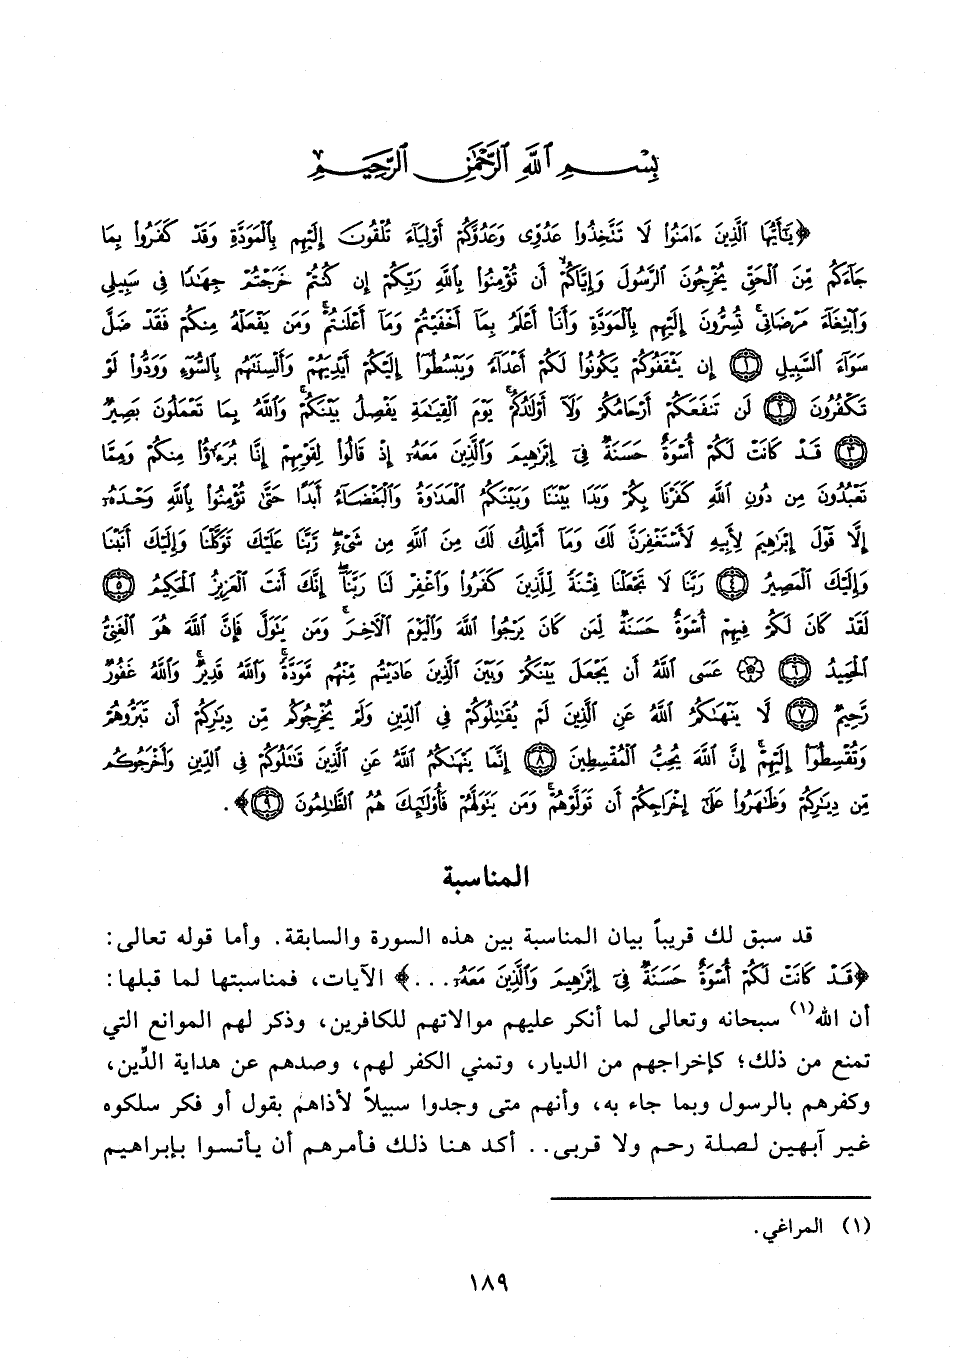 بِسْمِ اللَّهِ الرَّحْمَٰنِ الرَّحِيمِ
﴿يَٰٓأَيُّهَا الَّذِينَ ءَامَنُوا۟ لَا تَتَّخِذُوا۟ عَدُوِّى وَعَدُوَّكُمْ أَوْلِيَآءَ تُلْقُونَ إِلَيْهِم بِالْمَوَدَّةِ وَقَدْ كَفَرُوا۟ بِمَا
جَآءَكُم مِّنَ الْحَقِّ يُخْرِجُونَ الرَّسُولَ وَإِيَّاكُمْ ۙ أَن تُؤْمِنُوا۟ بِاللَّهِ رَبِّكُمْ إِن كُنتُمْ خَرَجْتُمْ جِهَٰدًا فِى سَبِيلِى
وَابْتِغَآءَ مَرْضَاتِى ۚ تُسِرُّونَ إِلَيْهِم بِالْمَوَدَّةِ وَأَنَا۠ أَعْلَمُ بِمَآ أَخْفَيْتُمْ وَمَآ أَعْلَنتُمْ ۚ وَمَن يَفْعَلْهُ مِنكُمْ فَقَدْ ضَلَّ
سَوَآءَ السَّبِيلِ ﴿١﴾ إِن يَثْقَفُوكُمْ يَكُونُوا۟ لَكُمْ أَعْدَآءً وَيَبْسُطُوٓا۟ إِلَيْكُمْ أَيْدِيَهُمْ وَأَلْسِنَتَهُم بِالسُّوٓءِ وَوَدُّوا۟ لَوْ
تَكْفُرُونَ ﴿٢﴾ لَن تَنفَعَكُمْ أَرْحَامُكُمْ وَلَآ أَوْلَٰدُكُمْ ۚ يَوْمَ الْقِيَٰمَةِ يَفْصِلُ بَيْنَكُمْ ۚ وَاللَّهُ بِمَا تَعْمَلُونَ بَصِيرٌ
﴿٣﴾ قَدْ كَانَتْ لَكُمْ أُسْوَةٌ حَسَنَةٌ فِىٓ إِبْرَٰهِيمَ وَالَّذِينَ مَعَهُۥٓ إِذْ قَالُوا۟ لِقَوْمِهِمْ إِنَّا بُرَءَٰٓؤُا۟ مِنكُمْ وَمِمَّا
تَعْبُدُونَ مِن دُونِ اللَّهِ كَفَرْنَا بِكُمْ وَبَدَا بَيْنَنَا وَبَيْنَكُمُ الْعَدَٰوَةُ وَالْبَغْضَآءُ أَبَدًا حَتَّىٰ تُؤْمِنُوا۟ بِاللَّهِ وَحْدَهُۥٓ
إِلَّا قَوْلَ إِبْرَٰهِيمَ لِأَبِيهِ لَأَسْتَغْفِرَنَّ لَكَ وَمَآ أَمْلِكُ لَكَ مِنَ اللَّهِ مِن شَىْءٍ ۖ رَّبَّنَا عَلَيْكَ تَوَكَّلْنَا وَإِلَيْكَ أَنَبْنَا
وَإِلَيْكَ الْمَصِيرُ ﴿٤﴾ رَبَّنَا لَا تَجْعَلْنَا فِتْنَةً لِّلَّذِينَ كَفَرُوا۟ وَاغْفِرْ لَنَا رَبَّنَآ ۖ إِنَّكَ أَنتَ الْعَزِيزُ الْحَكِيمُ ﴿٥﴾
لَقَدْ كَانَ لَكُمْ فِيهِمْ أُسْوَةٌ حَسَنَةٌ لِّمَن كَانَ يَرْجُوا۟ اللَّهَ وَالْيَوْمَ الْءَاخِرَ ۚ وَمَن يَتَوَلَّ فَإِنَّ اللَّهَ هُوَ الْغَنِىُّ
الْحَمِيدُ ﴿٦﴾ ۞ عَسَى اللَّهُ أَن يَجْعَلَ بَيْنَكُمْ وَبَيْنَ الَّذِينَ عَادَيْتُم مِّنْهُم مَّوَدَّةً ۚ وَاللَّهُ قَدِيرٌ ۚ وَاللَّهُ غَفُورٌ
رَّحِيمٌ ﴿٧﴾ لَّا يَنْهَىٰكُمُ اللَّهُ عَنِ الَّذِينَ لَمْ يُقَٰتِلُوكُمْ فِى الدِّينِ وَلَمْ يُخْرِجُوكُم مِّن دِيَٰرِكُمْ أَن تَبَرُّوهُمْ
وَتُقْسِطُوٓا۟ إِلَيْهِمْ ۚ إِنَّ اللَّهَ يُحِبُّ الْمُقْسِطِينَ ﴿٨﴾ إِنَّمَا يَنْهَىٰكُمُ اللَّهُ عَنِ الَّذِينَ قَٰتَلُوكُمْ فِى الدِّينِ وَأَخْرَجُوكُم
مِّن دِيَٰرِكُمْ وَظَٰهَرُوا۟ عَلَىٰٓ إِخْرَاجِكُمْ أَن تَوَلَّوْهُمْ ۚ وَمَن يَتَوَلَّهُمْ فَأُو۟لَٰٓئِكَ هُمُ الظَّٰلِمُونَ ﴿٩﴾﴾ .
المناسبة
قد سبق لك قريباً بيان المناسبة بين هذه السورة والسابقة. وأما قوله تعالى:
﴿قَدْ كَانَتْ لَكُمْ أُسْوَةٌ حَسَنَةٌ فِىٓ إِبْرَٰهِيمَ وَالَّذِينَ مَعَهُۥٓ...﴾ الآيات، فمناسبتها لما قبلها:
أن الله(١) سبحانه وتعالى لما أنكر عليهم موالاتهم للكافرين، وذكر لهم الموانع التي
تمنع من ذلك؛ كإخراجهم من الديار، وتمني الكفر لهم، وصدهم عن هداية الدِّين،
وكفرهم بالرسول وبما جاء به، وأنهم متى وجدوا سبيلاً لأذاهم بقول أو فكر سلكوه
غير آبهين لصلة رحم ولا قربى.. أكد هنا ذلك فأمرهم أن يأتسوا بإبراهيم
(١) المراغي.
١٨٩